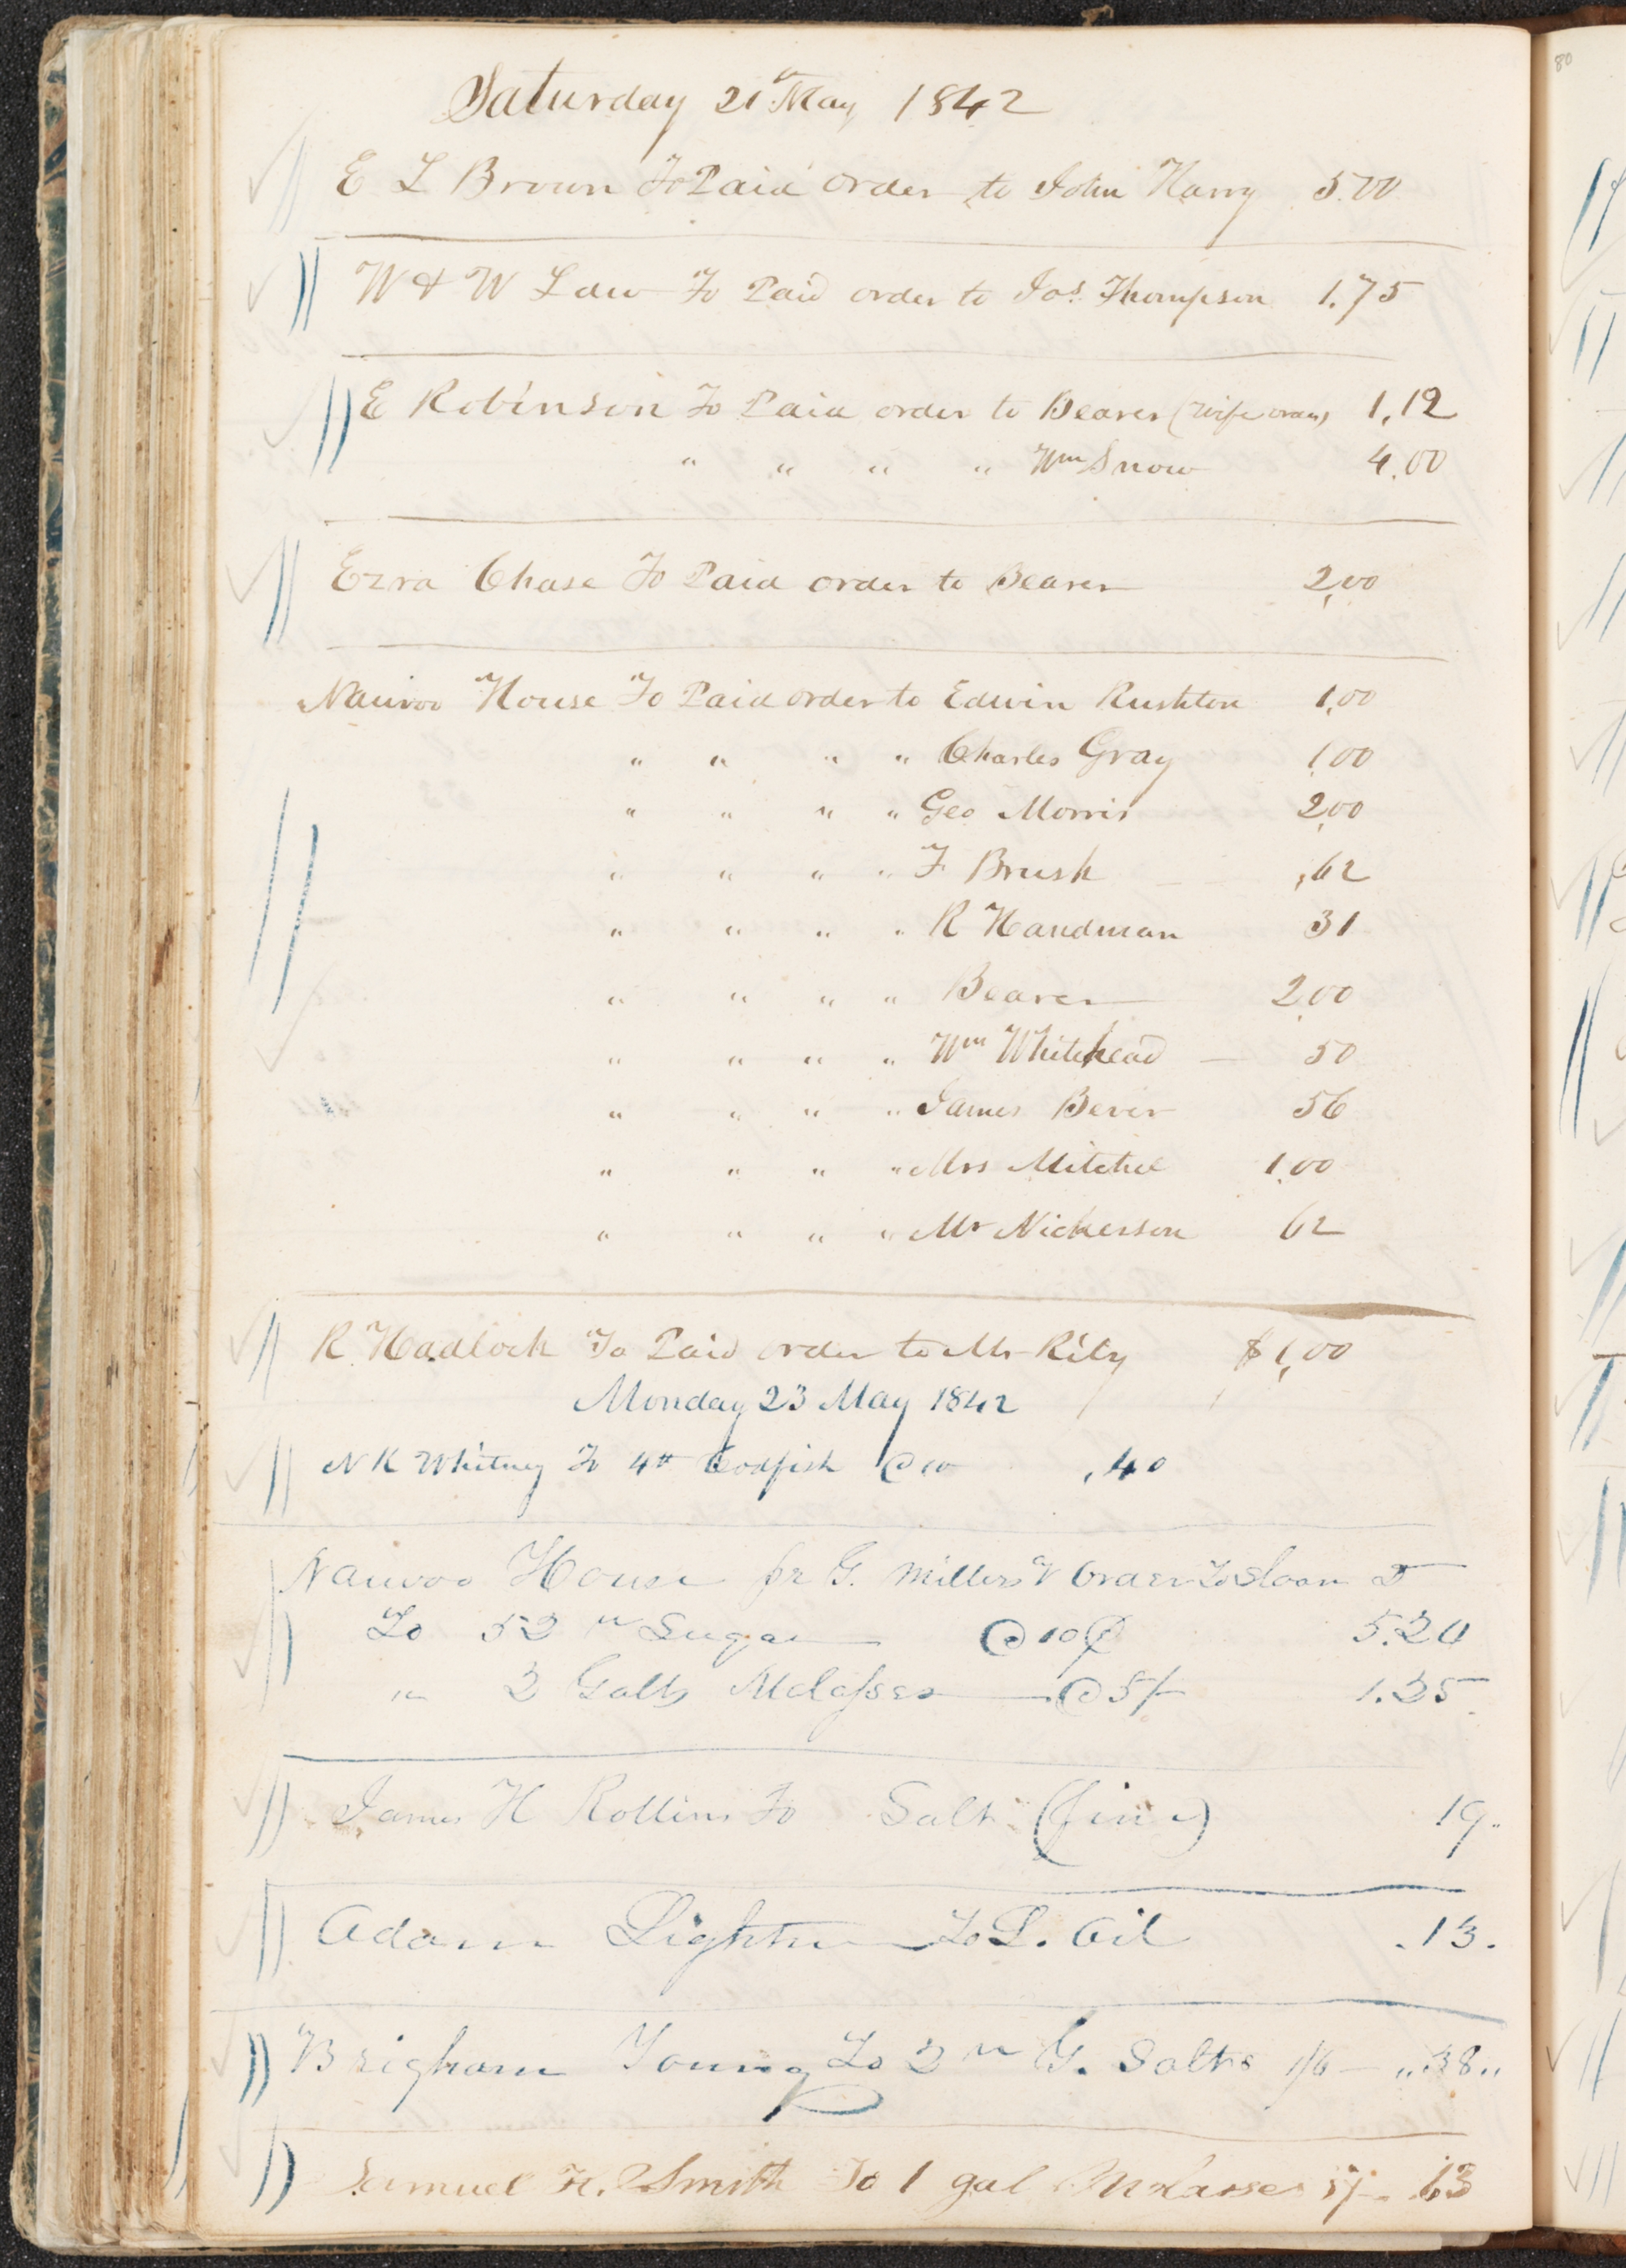 80
Saturday 21st May, 1842
E L Brown To Paid order to John Harry 5.00
W & W Law To Paid order to Jos. Thompson 1.75
E Robinson To Paid order to Bearer (Wife order) 1,12
" " " " Wm Snow 4.00
Ezra Chase To Paid order to Bearer 2,00
Nauvoo House To Paid order to Edwin Rushton 1,00
" " " " Charles Gray 1,00
" " " " Geo Morris 2,00
" " " " F Brush ,62
" " " " R Handman 31
" " " " Bearer 2,00
" " " " Wm Whitehead — 50
" " " " James Bever 56
" " " " Mrs Mitchel 1,00
" " " " Mr Nickerson 62
R. Hadlock To Paid order to Mr Rily $1,00
Monday 23 May 1842
N K Whitney To 4 lb Codfish @ 10 ,40
Nauvoo House pr G. Millers Order To Sloan
To 52 lb Sugar @ 10¢ 5.20
" 2 Galls Molasses — @ 5/- 1.25
James H Rollins To Salt (fine) 19.
Adam Lightner To L. Oil .13.
Brigham Young To 2 lb G. Salts 1/6 — "38"
Samuel H. Smith To 1 gal Molasses 5/- .63